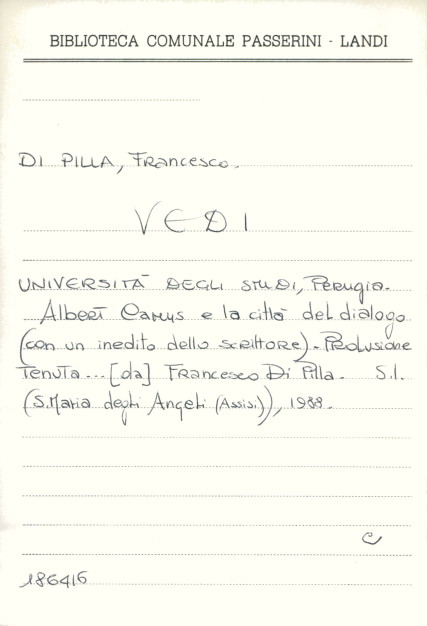 BIBLIOTECA COMUNALE PASSERINI - LANDI
DI PILLA, Francesco.
VEDI
UNIVERSITÀ DEGLI STUDI, Perugia.
Albert Camus e la città del dialogo
(con un inedito dello scrittore). Prolusione
tenuta... [da] Francesco Di Pilla. S.l.
(S. Maria degli Angeli (Assisi)), 1988.
C
186416